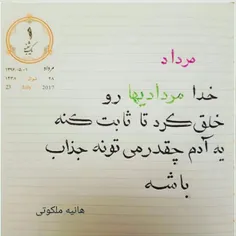 مرداد
۹
یکشنبه
مرداد
۱۳۹۶-۰۵-۰۱
۲۸
23
July
2017
خدا مردادیها رو
خلق کرد تا ثابت کنه
یه آدم چقدر می تونه جذاب
باشه
هانیه ملکوتی